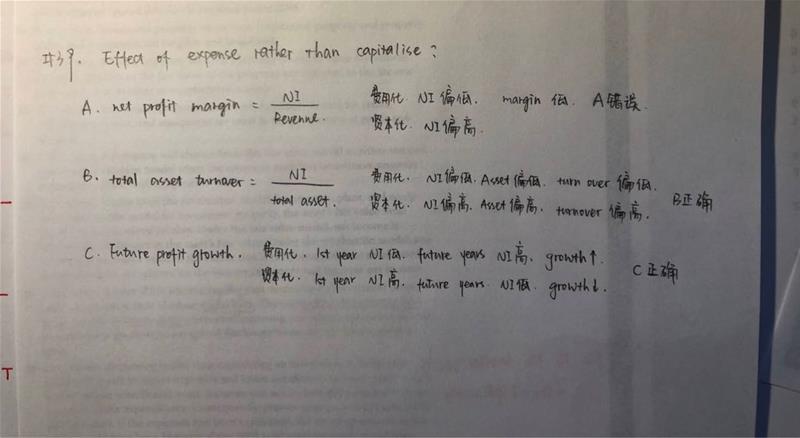 #39. Effect of expense rather than capitalise?
A. net profit margin = NI / Revenue. 费用化. NI 偏低. margin 低. A错误.
资本化. NI偏高.
B. total asset turnover = NI / total asset. 费用化. NI偏低. Asset偏低. turn over 偏低.
资本化. NI偏高. Asset偏高. turnover 偏高. B正确
C. Future profit growth. 费用化. 1st year NI低. future years NI高. growth↑.
资本化. 1st year NI高. future years. NI低. growth↓. C正确
T